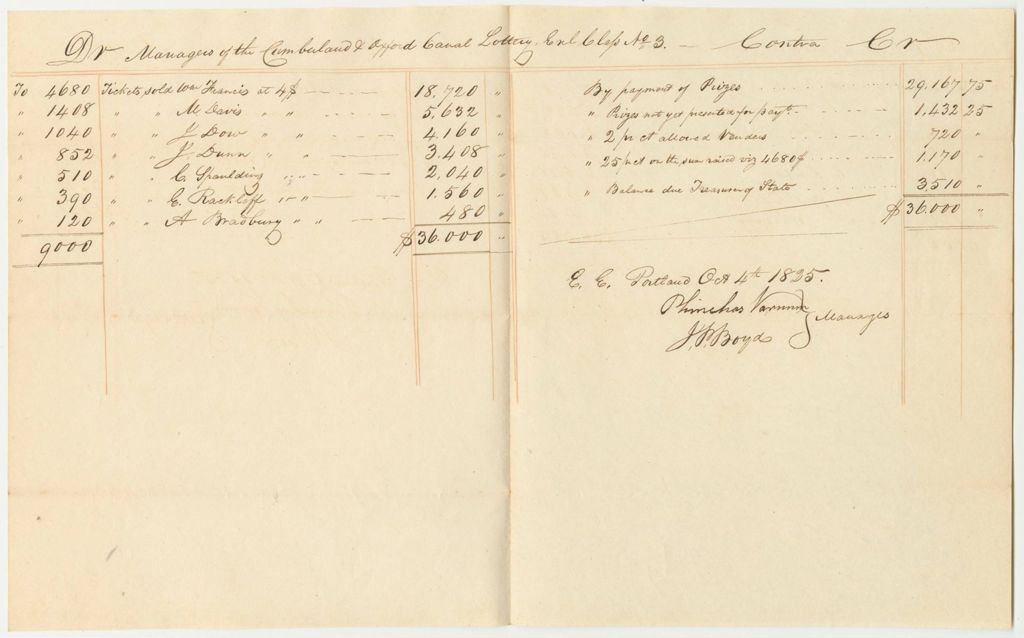 Dr Managers of the Cumberland & Oxford Canal Lottery, Exl Class No 3. — Contra Cr
To 4680 Tickets sold Wm Francis at 4$ 18,720 "
" 1408 " " M Davis " " 5,632 "
" 1040 " " J Dow " " 4,160 "
" 852 " " J. Dunn " " 3,408 "
" 510 " " C Spaulding " " 2,040 "
" 390 " " E. Rackleff " " 1,560 "
" 120 " " A Bradbury " " 480 "
9000 $36.000 "
By payment of Prizes 29,167 75
" Prizes not yet presented for payt. 1,432 25
" 2 pr ct allowed Venders 720 "
" 25 pr ct on the sum raised viz 4680$ 1,170 "
" Balance due Treasurer of State 3,510 "
$36.000 "
E. E. Portland Oct 4th 1825.
Phinehas Varnum
J. P. Boyd } Managers